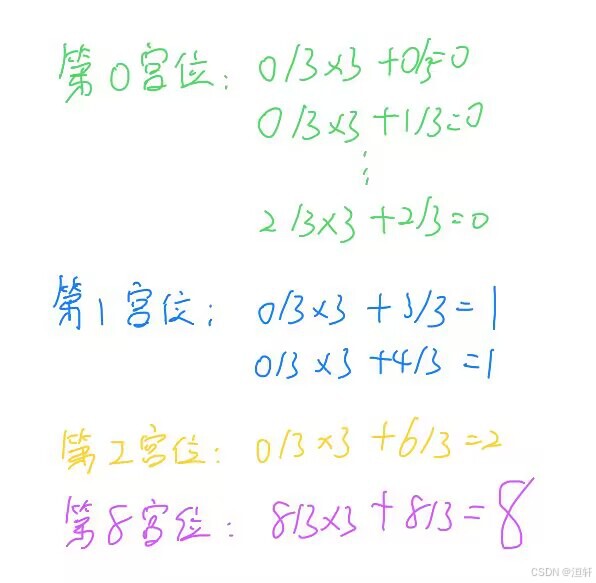 第0宫位: 0/3×3+0/3=0
0/3×3+1/3=0
⋮
2/3×3+2/3=0
第1宫位: 0/3×3+3/3=1
0/3×3+4/3=1
第2宫位: 0/3×3+6/3=2
第8宫位: 8/3×3+8/3=8
CSDN @洹轩